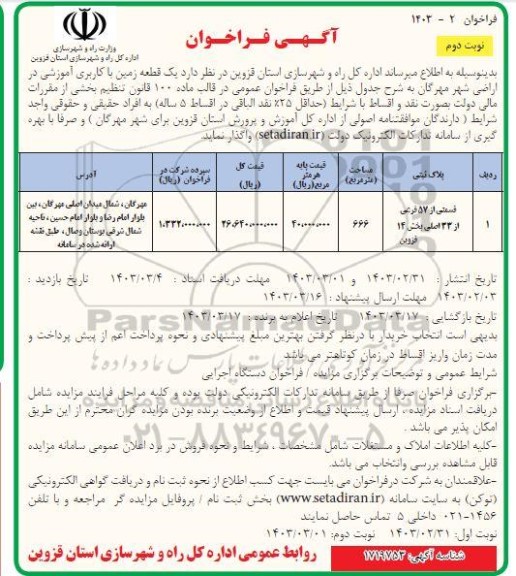 فراخوان ۲ - ۱۴۰۳
نوبت دوم
آگهـی فـراخـوان
وزارت راه و شهرسازی
اداره کل راه و شهرسازی استان قزوین
بدینوسیله به اطلاع میرساند اداره کل راه و شهرسازی استان قزوین در نظر دارد یک قطعه زمین با کاربری آموزشی در
اراضی شهر مهرگان به شرح جدول ذیل از طریق فراخوان عمومی در قالب ماده ۱۰۰ قانون تنظیم بخشی از مقررات
مالی دولت بصورت نقد و اقساط با شرایط (حداقل ۲۵٪ نقد الباقی در اقساط ۵ ساله) به افراد حقیقی و حقوقی واجد
شرایط ( دارندگان موافقتنامه اصولی از اداره کل آموزش و پرورش استان قزوین برای شهر مهرگان ) و صرفا با بهره
گیری از سامانه تدارکات الکترونیک دولت (setadiran.ir) واگذار نماید.
ردیف
پلاک ثبتی
مساحت (مترمربع)
قیمت پایه هرمتر مربع(ریال)
قیمت کل (ریال)
سپرده شرکت در فراخوان (ریال)
آدرس
۱
قسمتی از ۵۷ فرعی
از ۳۳ اصلی بخش ۱۴
قزوین
۶۶۶
۴۰.۰۰۰.۰۰۰
۲۶.۶۴۰.۰۰۰.۰۰۰
۱.۳۳۲.۰۰۰.۰۰۰
مهرگان ، شمال میدان اصلی مهرگان ، بین
بلوار امام رضا و بلوار امام حسین ، ناحیه
شمال شرقی بوستان وصال ، طبق نقشه
ارائه شده در سامانه
تاریخ انتشار : ۱۴۰۳/۰۲/۳۱ و ۱۴۰۳/۰۳/۰۱ مهلت دریافت اسناد : ۱۴۰۳/۰۳/۴ تاریخ بازدید :
۱۴۰۳/۰۲/۰۳ مهلت ارسال پیشنهاد : ۱۴۰۳/۰۳/۱۶
تاریخ بازگشایی : ۱۴۰۳/۰۳/۱۷ تاریخ اعلام به برنده : ۱۴۰۳/۰۳/۱۷
بدیهی است انتخاب خریدار با درنظر گرفتن بهترین مبلغ پیشنهادی و نحوه پرداخت اعم از پیش پرداخت و
مدت زمان واریز اقساط در زمان کوتاهتر می باشد
شرایط عمومی و توضیحات برگزاری مزایده / فراخوان دستگاه اجرایی
-برگزاری فراخوان صرفا از طریق سامانه تدارکات الکترونیکی دولت بوده و کلیه مراحل فرایند مزایده شامل
دریافت اسناد مزایده ، ارسال پیشنهاد قیمت و اطلاع از وضعیت برنده بودن مزایده گران محترم از این طریق
امکان پذیر می باشد .
-کلیه اطلاعات املاک و مستغلات شامل مشخصات ، شرایط و نحوه فروش در برد اعلان عمومی سامانه مزایده
قابل مشاهده بررسی وانتخاب می باشد.
-علاقمندان به شرکت درفراخوان می بایست جهت کسب اطلاع از نحوه ثبت نام و دریافت گواهی الکترونیکی
(توکن) به سایت سامانه (www.setadiran.ir) بخش ثبت نام / پروفایل مزایده گر مراجعه و با تلفن
۰۲۱-۱۴۵۶ داخلی ۵ تماس حاصل نمایند
نوبت اول: ۱۴۰۳/۰۲/۳۱ نوبت دوم: ۱۴۰۳/۰۳/۰۱
شناسه آگهی: ۱۷۱۹۷۵۳
روابط عمومی اداره کل راه و شهرسازی استان قزوین
ParsNamadData
۰۲۱-۸۸۳۴۹۶۷۰-۵